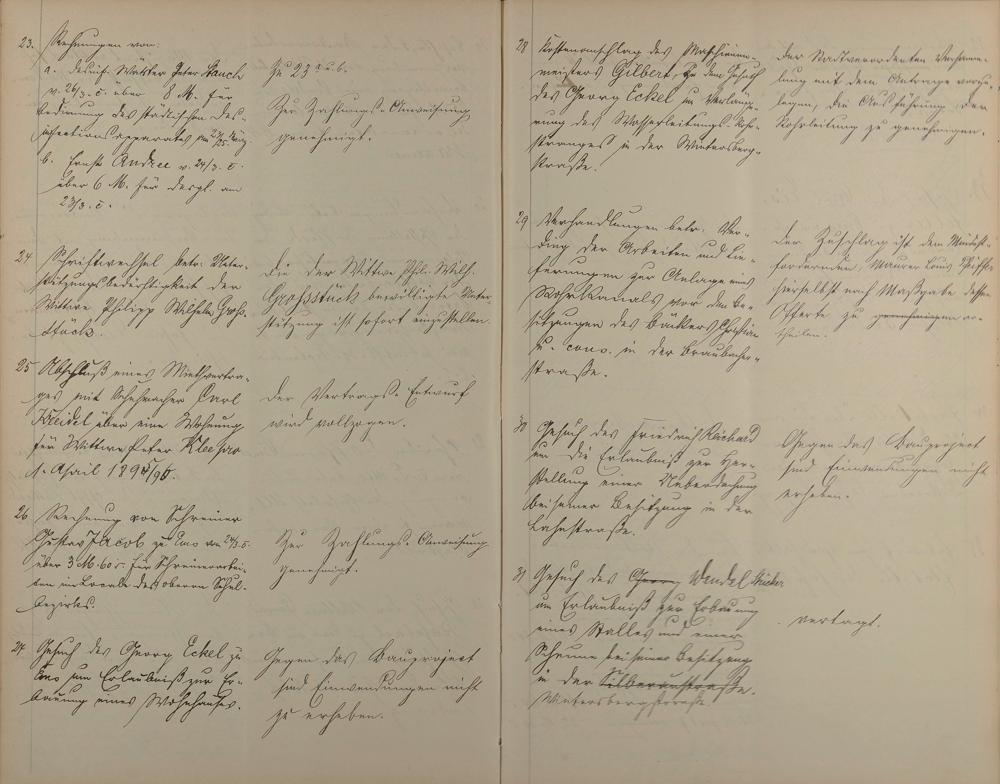 23. Rechnungen von:
a. Desinf. Wärter Peter Stauch
v. 26/3. c. über 8 M. für
Bedienung des städtischen Des-
infectionsapparates am
b. Ernst Andree v. 24/3. c.
über 6 M. für desgl. am
23/3. c.
Zu 23 a u. b.
Zur Zahlungs-Anweisung
genehmigt.
24 Schriftwechsel betr. Unter-
stützungsbedürftigkeit der
Wittwe Philipp Wilhelm Groß-
stück.
Die der Wittwe Phil. Wilh.
Großstück bewilligte Unter-
stützung ist sofort einzustellen.
25 Abschluß eines Miethvertra-
ges mit Schuhmacher Carl
Kreidel über eine Wohnung
für Wittwe Peter Klee pro
1. April 1895/96.
Der Vertrags-Entwurf
wird vollzogen.
26 Rechnung von Schreiner
Gustav Jacob zu Ems vom 24/3. c.
über 3 M. 60 für Schreinerarbei-
ten im Locale des oberen Schul-
bezirks.
Zur Zahlungs-Anweisung
genehmigt.
27 Gesuch des Georg Eckel zu
Ems um Erlaubniß zur Er-
bauung eines Wohnhauses.
Gegen das Bauproject
sind Einwendungen nicht
zu erheben.
28 Kostenanschlag des Maschinen-
meisters Gilbert zu dem Gesuch
des Georg Eckel um Verlänge-
rung des Wasserleitungs-Roh-
stranges in der Wintersberg-
straße.
Der Stadtverordneten Versamm-
lung mit dem Antrage vorzu-
legen, die Ausführung der
Rohrleitung zu genehmigen.
29 Verhandlungen betr. Ver-
ding der Arbeiten und Lie-
ferungen zur Anlage eines
Rohrkanals vor den Be-
sitzungen des Bäckers Christian
u. cons. in der Braubacher-
straße.
Der Zuschlag ist dem Mindest-
fordernden, Maurer Louis
hierselbst nach Maßgabe dessen
Offerte zu genehmigen er-
theilen.
30 Gesuch des Friedrich Reichard
um die Erlaubniß zur Her-
stellung einer Ueberdachung
bei seiner Besitzung in der
Lahnstraße.
Gegen das Bauproject
sind Einwendungen nicht
erheben.
31 Gesuch des Georg Wendel
um Erlaubniß zur Erbauung
eines Stalles und einer
Scheune bei seiner Besitzung
in der Silberaustraße.
Wintersbergstraße.
vertagt.